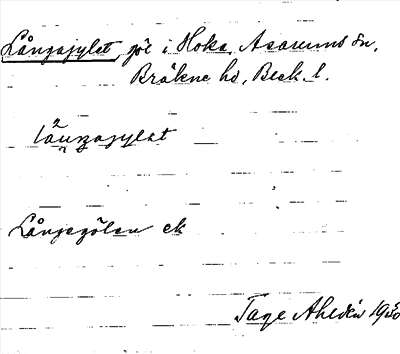 Långagylet, göl i Hoka, Asarums sn,
Bräkne hd, Blek. l.
långagylet
Långagölen ek
Tage Ahldén 1930